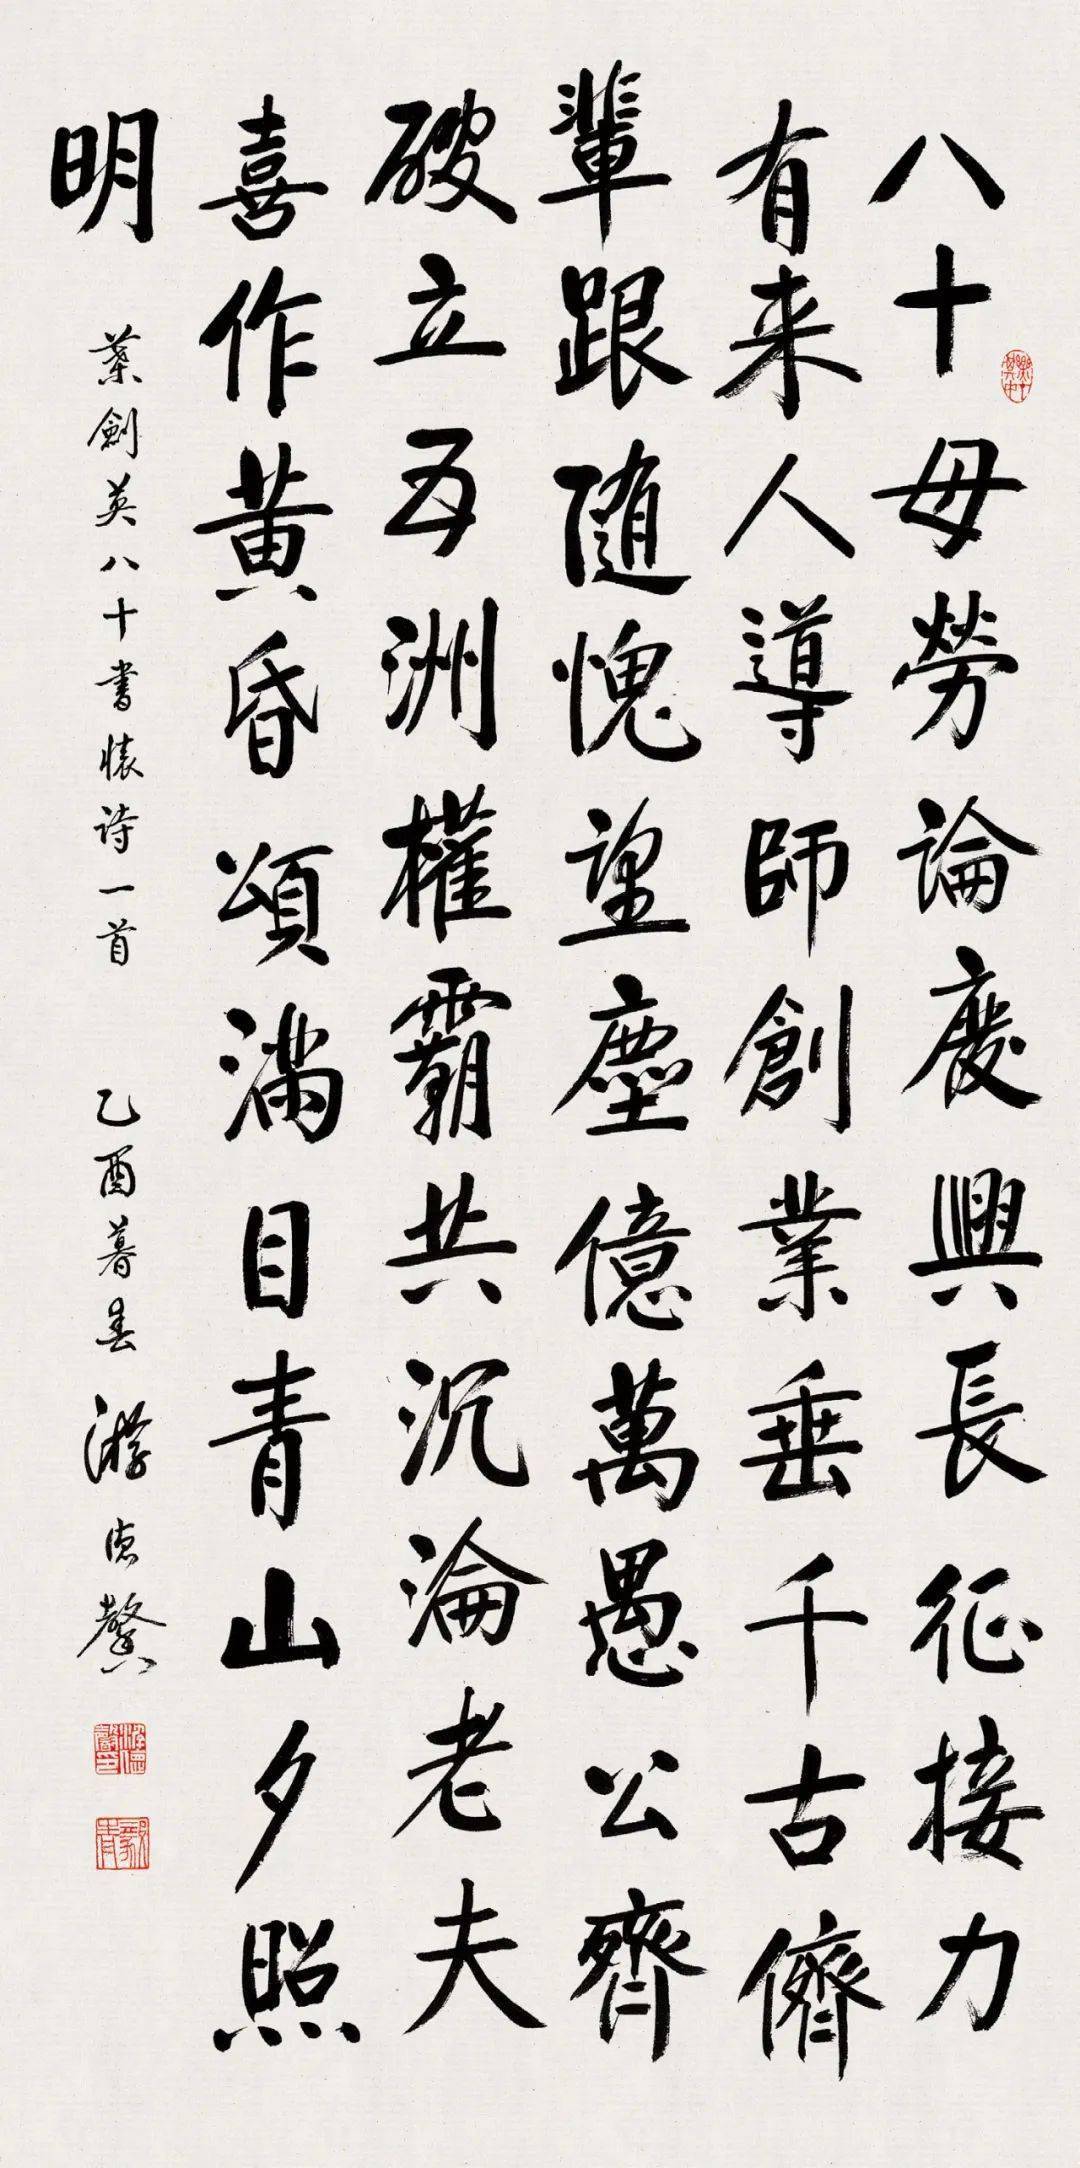 八十毋勞論廢興長征接力
有来人導師創業垂千古儕
輩跟隨愧望塵億萬愚公齊
破立五洲權霸共沉淪老夫
喜作黄昏頌滿目青山夕照
明
葉劍英八十書懷诗一首 乙酉暮春 游德馨
游德馨印